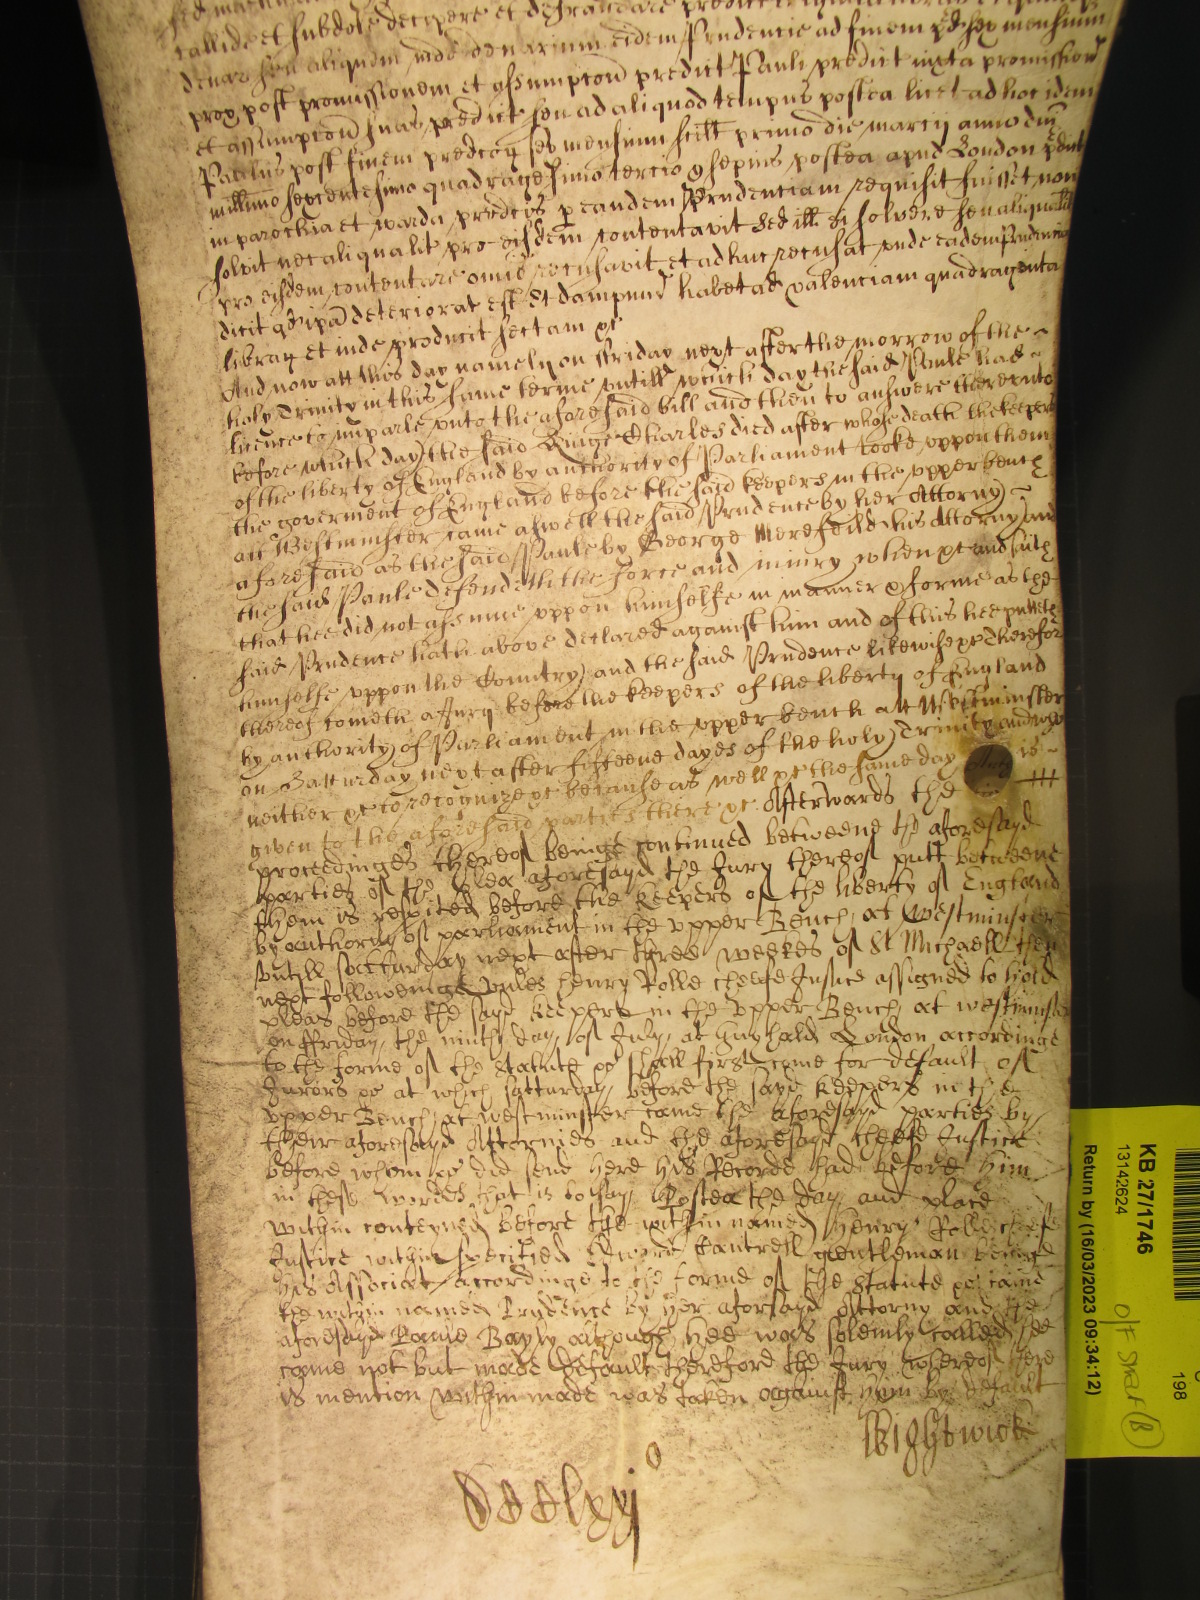 callide et subdole decipere et defraudare predict
denar seu aliquem inde denarium eidem Prudencie ad finem p̄d sex mensium
prox post promissionem et assumpcoem predict Pauli predict iuxta promissioē
et assumpcoem suas predict seu ad aliquod tempus postea licet ad hoc idem
Paulus post finem predcoȝ sex mensium scilt primo die marcij anno dni
millimo sexcentesimo quadragesimo tercio & sepius postea apud London p̄dict
in parochia et warda predcis p eandem Prudenciam requisit fuisset non
solvit nec aliqualit pro eisdem contentavit Sed ill ei solvere seu aliqualit
pro eisdem contentare omio recusavit et adhuc recusat unde eadem Prudencia
dicit qd ipa deteriorat est Et dampnu habet ad valenciam quadragenta
libraȝ et inde producit sectam &c
And now att this day namely on ffriday next after the morrow of the
holy Trinity in this same terme untill which day the said Paule had
licence to imparle unto the aforesaid bill and then to answere thereunto
before which day the said Kinge Charles died after whose death the keepers
of the liberty of England by authority of Parliament tooke uppon them
the goverment of England before the said keepers in the upper bench
att Westminster came aswell the said Prudence by her Attorny
aforesaid as the said Paule by George Merefeild his Attorny and
the said Paule defendeth the force and iniury when &c and saith
that hee did not assume uppon himselfe in manner & forme as the
said Prudence hath above declared against him and of this hee putteth
himselfe uppon the Country and the said Prudence likewise &c Therefore
thereof cometh a Jury before the keepers of the liberty of England
by authority of Parliament in the upper bench att Westminster
on Satturday next after fifteene dayes of the holy Trinity and who
neither &c to recognize &c because as well &c the same day is
given to the aforesaid parties there &c Afterwards the
proceedinges thereof beinge continued betweene the aforesayd
parties of the plea aforesayd the Jury thereof putt betweene
them is respited before the Keepers of the liberty of England
by authority of parliament in the upper Bench at Westminster
untill Satturday next after three weekes of St Michaell then
next followeinge unles Henry Rolle cheefe Justice assigned to hold
pleas before the sayd Keepers in the upper Bench at westminster
on ffriday the ninth day of July at Guyhald London accordinge
to the forme of the Statute &c shall first come for default of
Jurors &c at which Satturday before the sayd Keepers in the
upper Bench at westminster came the aforesayd parties by
their aforesayd Attornies and the aforesayd cheefe Justice
before whom &c did send here his Recorde had before him
in thes wordes that is to say Postea the day and place
within conteyned before the within named Henry Rolle cheefe
Justice within specified Cantrell gentleman beinge
his Associat accordinge to the forme of the Statute &c came
the within named Prudence by her aforsayd Attorny and the
aforesayd Paule Bayly although hee was solemly called hee
came not but made default therefore the Jury whereof here
is mention within made was taken against him by default
Wightwick
KB 27/1746
13142624
Return by (16/03/2023 09:34:12)
198